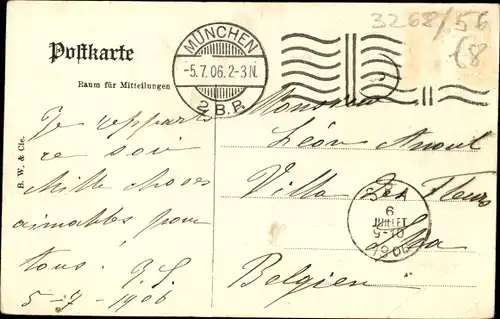 3268/56
(8
Postkarte
Raum für Mitteilungen
MÜNCHEN
-5.7.06.2-3N.
2 B.P.
B. W. & Cie.
Je repparts
ce soir
Mille choses
aimables pour
tous. J.S.
5-7-1906
Monsieur
Léon
Villa Fleurs
Spa
Belgien
SPA
6
JUILLET
9-10
1906